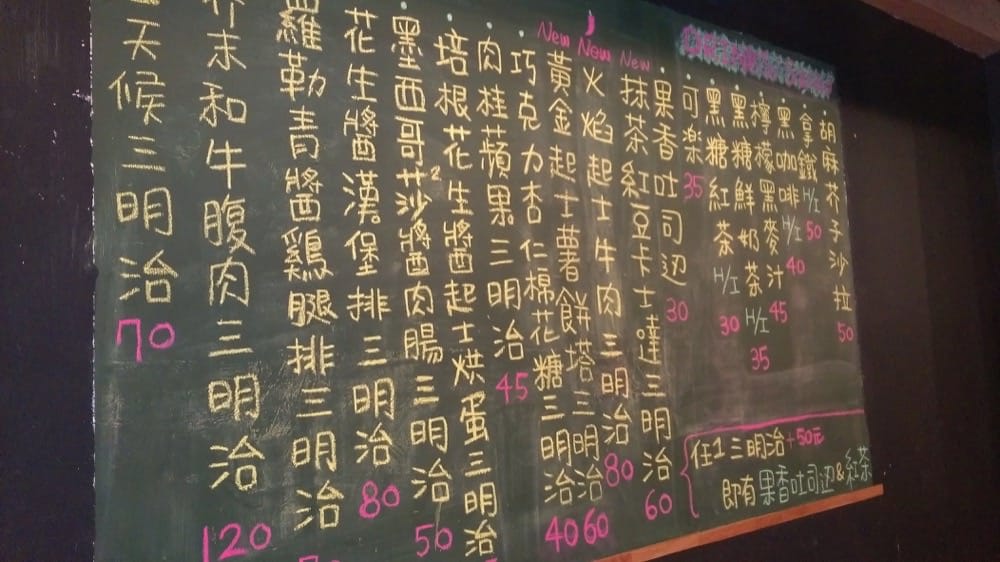 胡麻芥子沙拉 50
拿鐵 H/I 50
黑咖啡 H/I 40
檸檬黑麥汁 45
黑糖鮮奶茶 H/I 35
黑糖紅茶 H/I 30
可樂 35
果香吐司边 30
New 抹茶紅豆卡士達三明治 60
New 火焰起士牛肉三明治 80
New 黃金起士薯餅塔三明治 60
巧克力杏仁棉花糖三明治 40
肉桂蘋果三明治 45
培根花生醬起士烘蛋三明治
墨西哥莎2醬肉腸三明治 50
花生醬漢堡排三明治 80
羅勒青醬鷄腿排三明治
末和牛腹肉三明治 120
天候三明治 70
任1三明治+50元
即有果香吐司边&紅茶